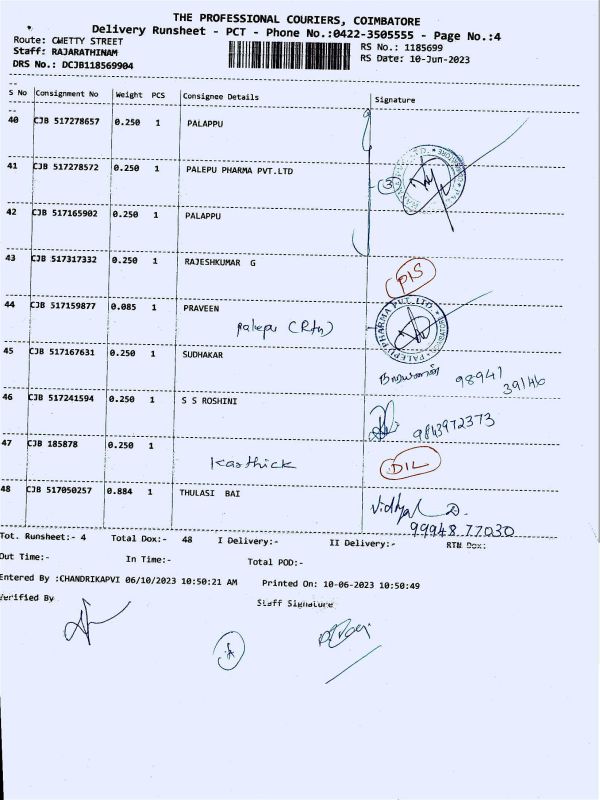 THE PROFESSIONAL COURIERS, COIMBATORE
Delivery Runsheet - PCT - Phone No.:0422-3505555 - Page No.:4
Route: CHETTY STREET
RS No.: 1185699
Staff: RAJARATHINAM
RS Date: 10-Jun-2023
DRS No.: DCJB118569904
S No Consignment No Weight PCS Consignee Details Signature
40 CJB 517278657 0.250 1 PALAPPU
41 CJB 517278572 0.250 1 PALEPU PHARMA PVT.LTD
3
42 CJB 517165902 0.250 1 PALAPPU
43 CJB 517317332 0.250 1 RAJESHKUMAR G
DIS
44 CJB 517159877 0.085 1 PRAVEEN
palepu (Rtn)
PALEPU PHARMA PVT. LTD
45 CJB 517167631 0.250 1 SUDHAKAR
நாராயணன் 98941
39146
46 CJB 517241594 0.250 1 S S ROSHINI
9843972373
47 CJB 185878 0.250 1
Karthick
DIL
48 CJB 517050257 0.884 1 THULASI BAI
99948 77030
Tot. Runsheet:- 4 Total Dox:- 48 I Delivery:- II Delivery:- RTN Dox:
Out Time:- In Time:- Total POD:-
Entered By :CHANDRIKAPVI 06/10/2023 10:50:21 AM Printed On: 10-06-2023 10:50:49
Verified By Staff Signature